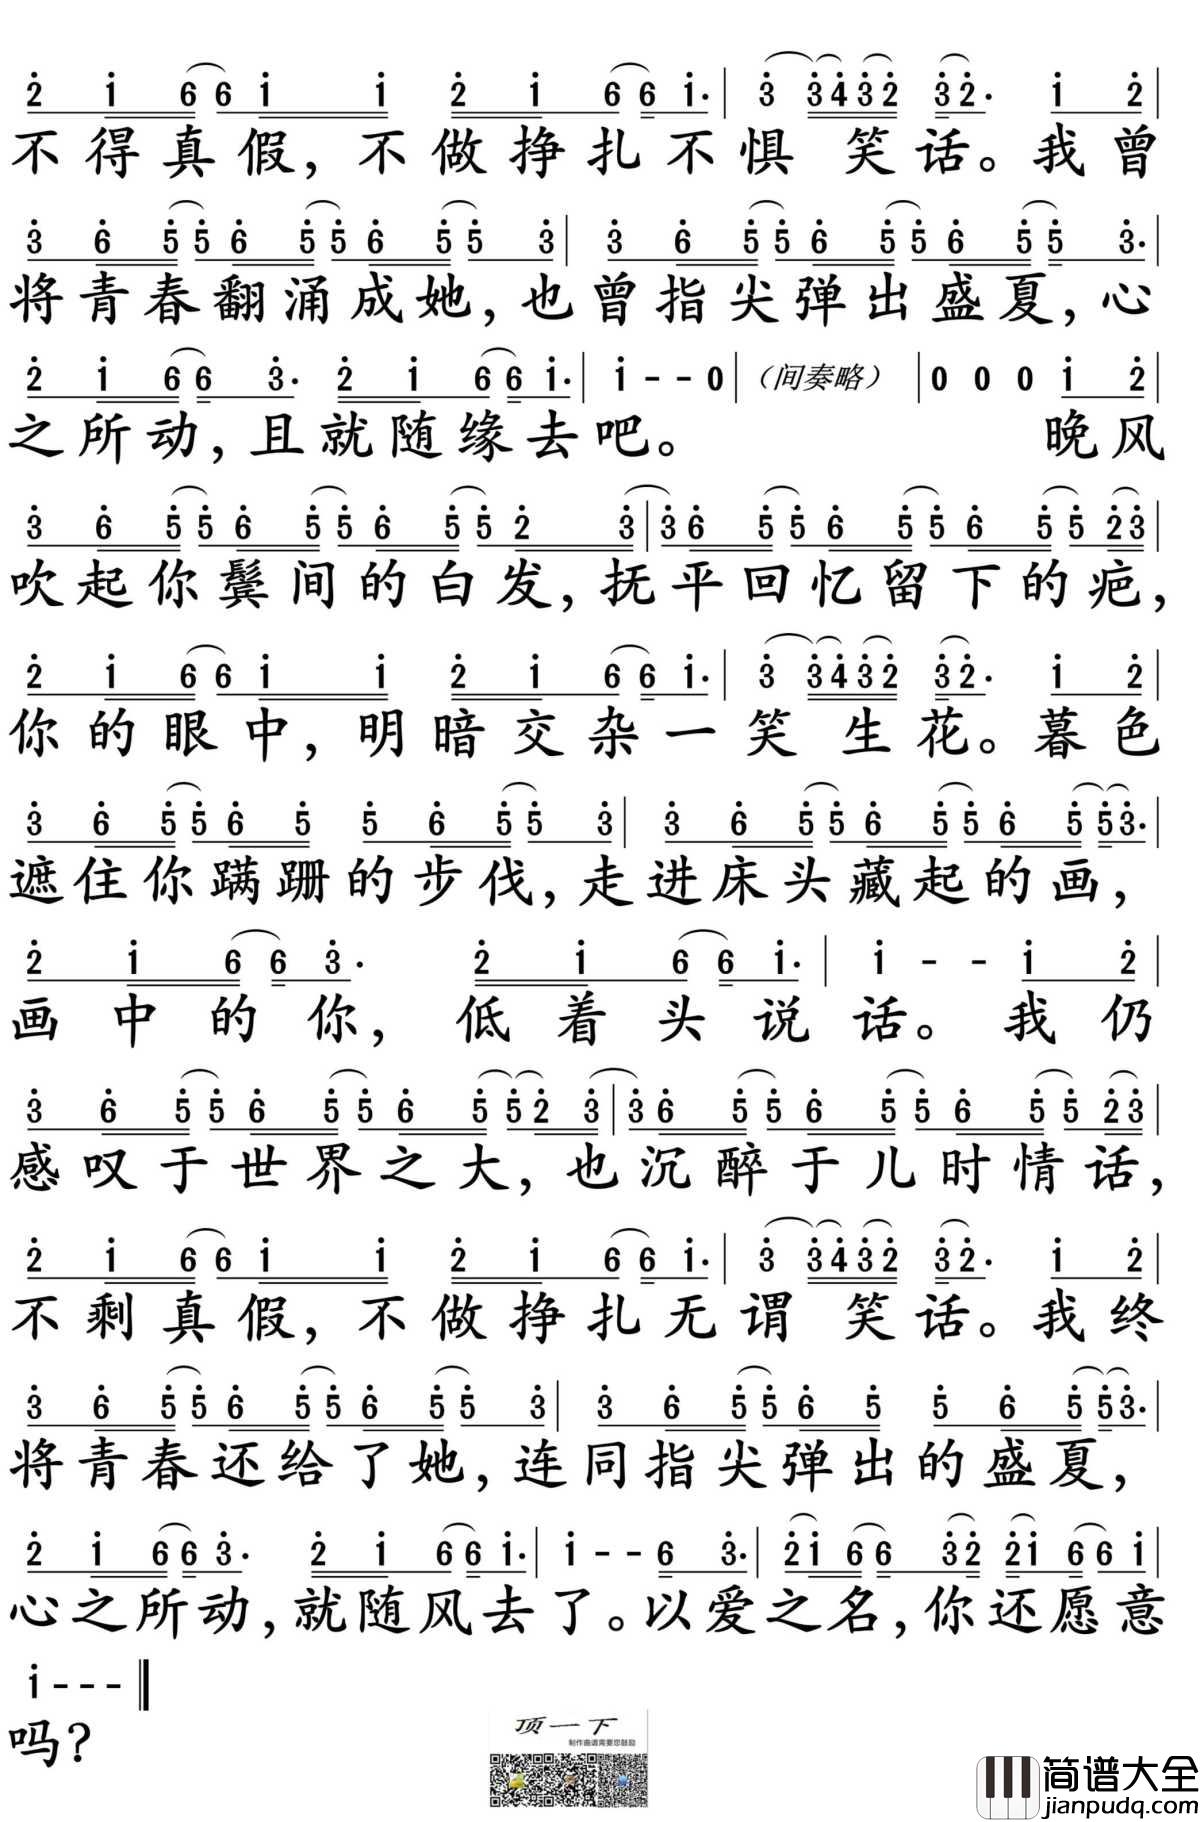 2 1 6 6 1 1 2 1 6 6 1· | 3 3 4 3 2 3 2· 1 2 |
不得真假，不做挣扎不惧 笑话。我曾
3 6 5 5 6 5 5 6 5 5 3 | 3 6 5 5 6 5 5 6 5 5 3· |
将青春翻涌成她，也曾指尖弹出盛夏，心
2 1 6 6 3· 2 1 6 6 1· | 1 - - 0 | （间奏略） | 0 0 0 1 2 |
之所动，且就随缘去吧。 晚风
3 6 5 5 6 5 5 6 5 5 2 3 | 3 6 5 5 6 5 5 6 5 5 2 3 |
吹起你鬓间的白发，抚平回忆留下的疤，
2 1 6 6 1 1 2 1 6 6 1· | 3 3 4 3 2 3 2· 1 2 |
你的眼中，明暗交杂一笑 生花。暮色
3 6 5 5 6 5 5 6 5 5 3 | 3 6 5 5 6 5 5 6 5 5 3· |
遮住你蹒跚的步伐，走进床头藏起的画，
2 1 6 6 3· 2 1 6 6 1· | 1 - - 1 2 |
画中的你，低着头说话。我仍
3 6 5 5 6 5 5 6 5 5 2 3 | 3 6 5 5 6 5 5 6 5 5 2 3 |
感叹于世界之大，也沉醉于儿时情话，
2 1 6 6 1 1 2 1 6 6 1· | 3 3 4 3 2 3 2· 1 2 |
不剩真假，不做挣扎无谓 笑话。我终
3 6 5 5 6 5 5 6 5 5 3 | 3 6 5 5 6 5 5 6 5 5 3· |
将青春还给了她，连同指尖弹出的盛夏，
2 1 6 6 3· 2 1 6 6 1· | 1 - - 6 3· | 2 1 6 6 3 2 2 1 6 6 1 |
心之所动，就随风去了。以爱之名，你还愿意
1 - - - ‖
吗？
顶一下
制作曲谱需要您鼓励
简谱大全
jianpudq.com